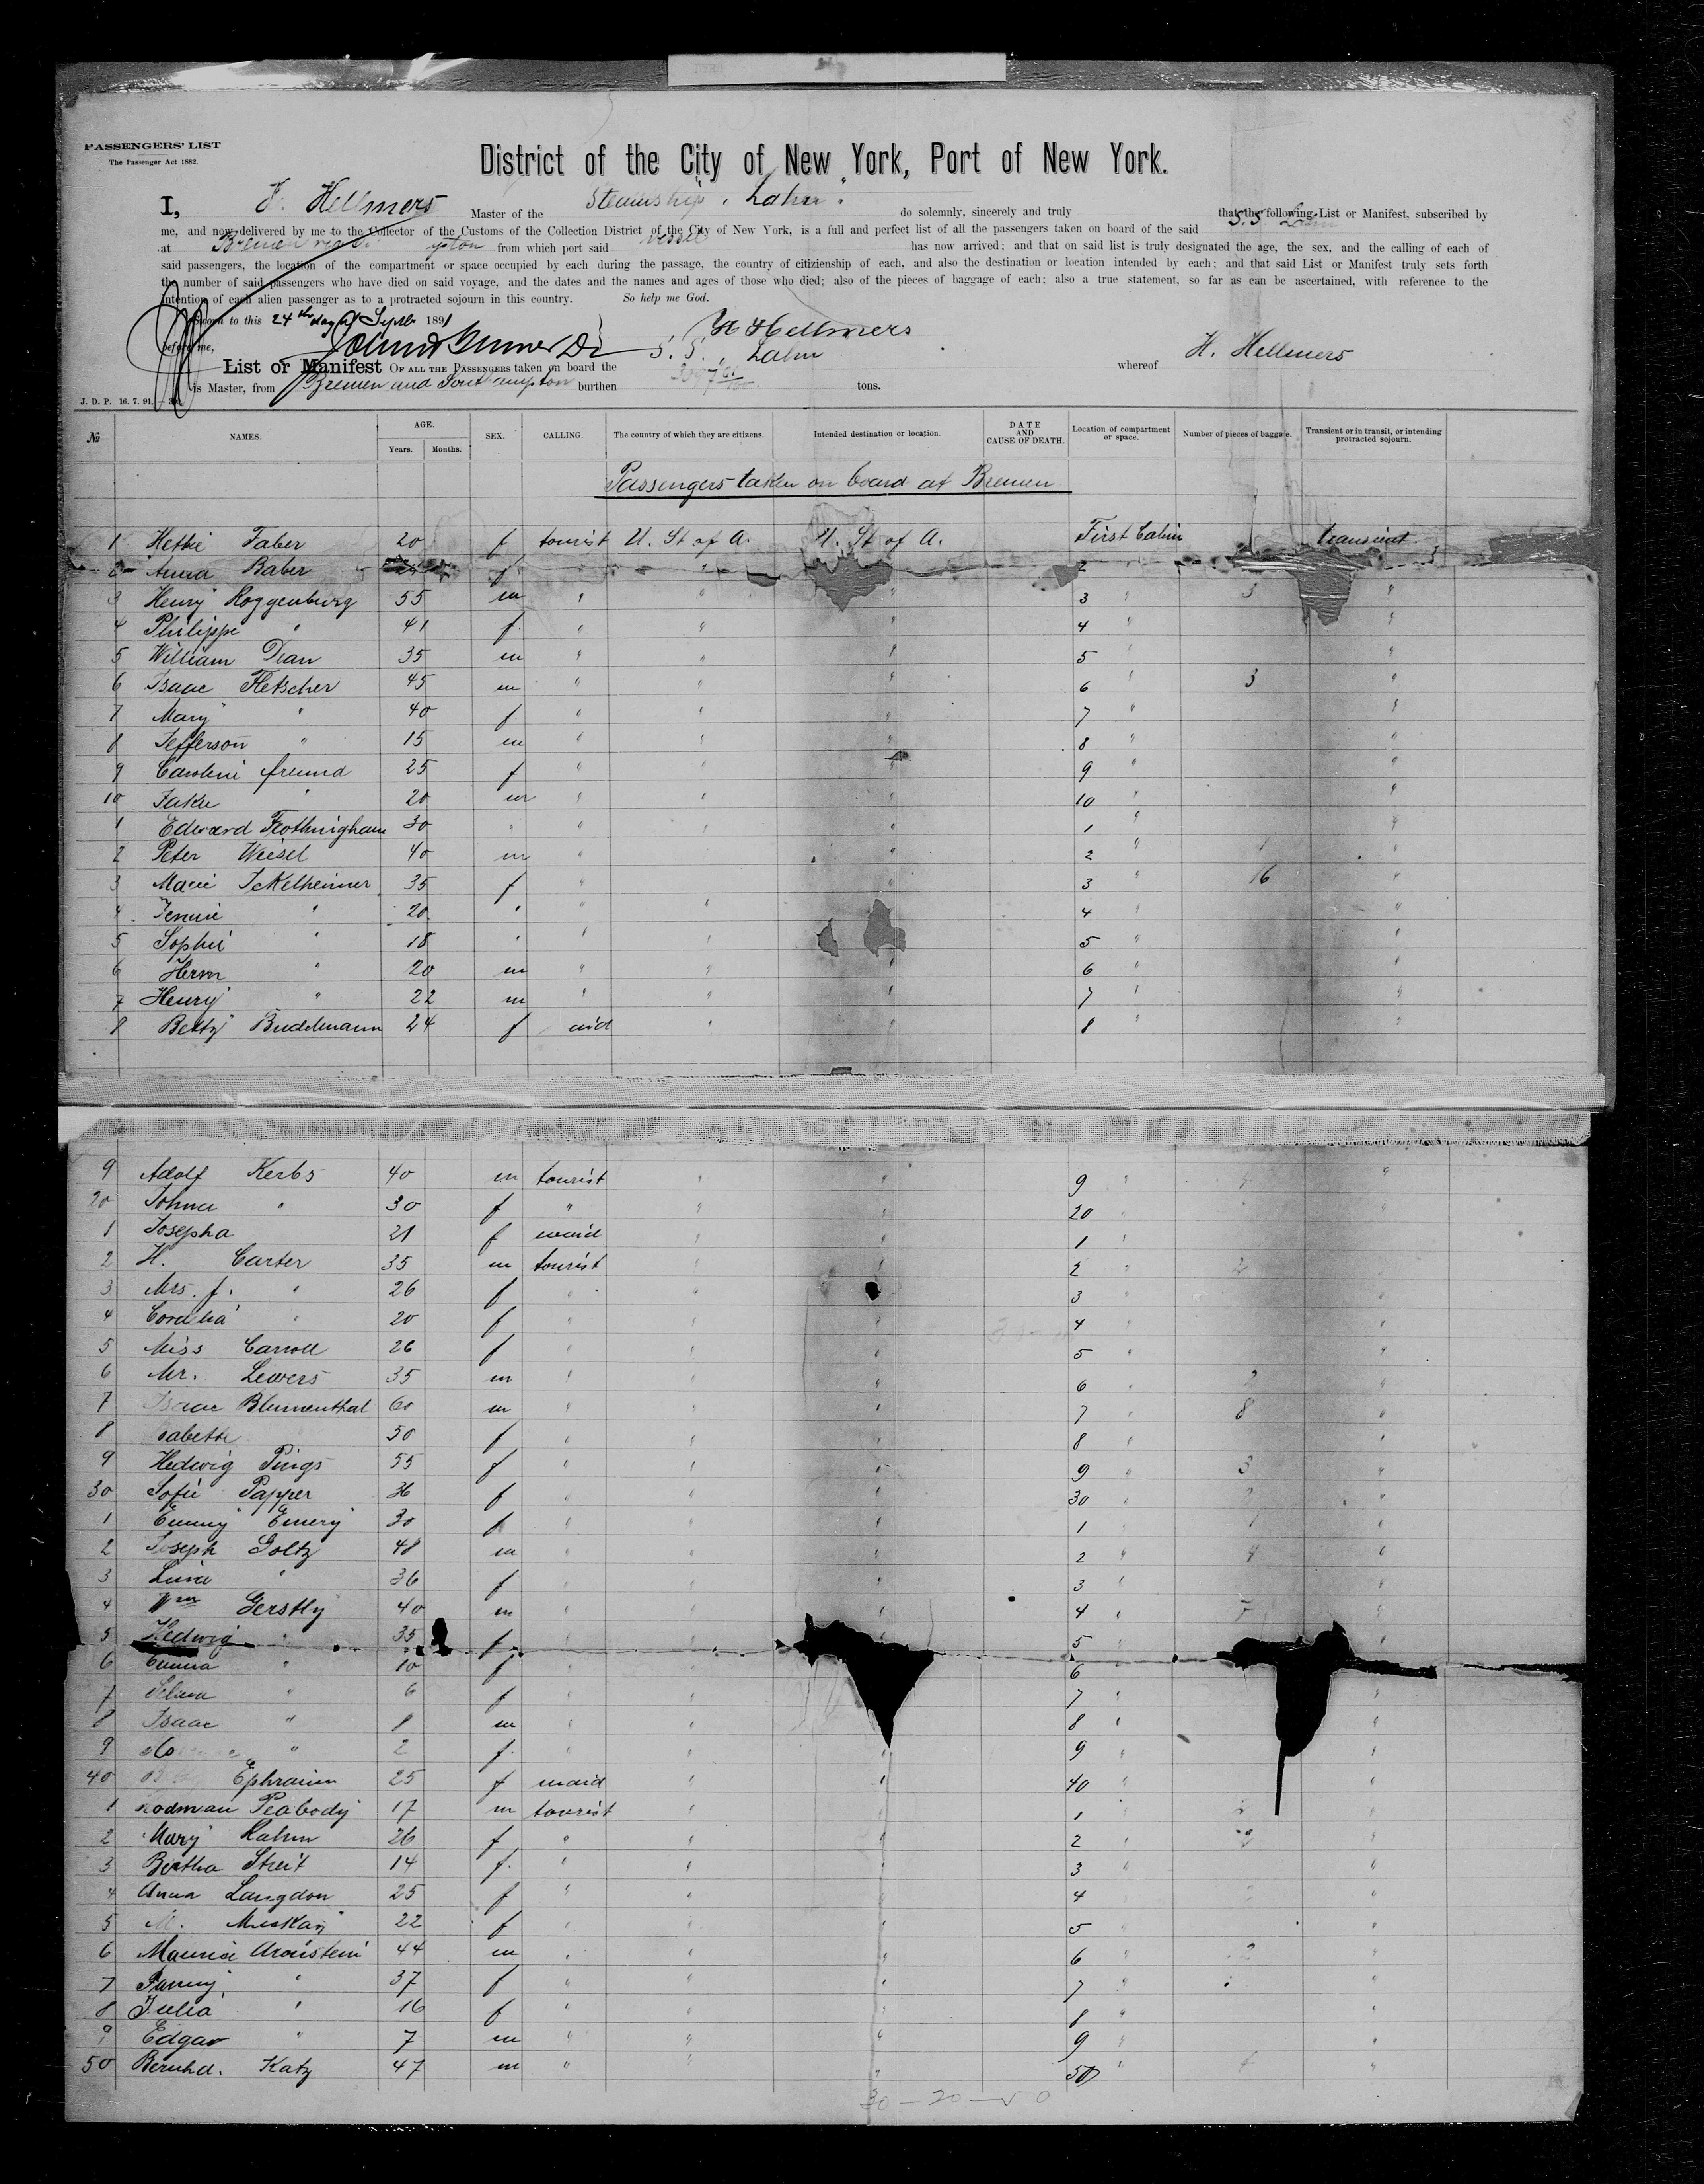 PASSENGERS' LIST
The Passenger Act 1882.
District of the City of New York, Port of New York.
I, H. Hellmers Master of the Steamship "Lahn" do solemnly, sincerely and truly that the following List or Manifest, subscribed by
me, and now delivered by me to the Collector of the Customs of the Collection District of the City of New York, is a full and perfect list of all the passengers taken on board of the said S.S. Lahn
at Bremen from which port said vessel has now arrived; and that on said list is truly designated the age, the sex, and the calling of each of
said passengers, the location of the compartment or space occupied by each during the passage, the country of citizienship of each, and also the destination or location intended by each; and that said List or Manifest truly sets forth
the number of said passengers who have died on said voyage, and the dates and the names and ages of those who died; also of the pieces of baggage of each; also a true statement, so far as can be ascertained, with reference to the
intention of each alien passenger as to a protracted sojourn in this country. So help me God.
Sworn to this 24th day of Septb 1891
before me,
H Hellmers
List or Manifest OF ALL THE PASSENGERS taken on board the S. S. "Lahn whereof H. Hellmers
is Master, from Bremen and Southampton burthen tons.
J. D. P. 16. 7. 91.
№ NAMES. AGE. Years. Months. SEX. CALLING. The country of which they are citizens. Intended destination or location. DATE AND CAUSE OF DEATH. Location of compartment or space. Number of pieces of baggage. Transient or in transit, or intending protracted sojourn.
Passengers taken on board at Bremen
1 Hettie Faber 20 f tourist U. St of A. U. St of A. First Cabin transient
2 Anna Baber f " 2
3 Henry Roggenburg 55 m " " " 3 " 3 "
4 Philippe " 41 f " " " 4 " "
5 William Dean 35 m " " " 5 " "
6 Isaac Fletscher 45 m " " " 6 " 3 "
7 Mary " 40 f " " " 7 " "
8 Jefferson " 15 m " " " 8 " "
9 Caroline freund 25 f " " " 9 " "
10 " 20 m " " " 10 " "
1 Edward Frothingham 30 " " " " 1 " "
2 Peter Weisel 40 m " " 2 " 1 "
3 Marie Ickelheimer 35 f " " 3 " 16 "
4 Jennie " 20 " " " " 4 " "
5 Sophie " 18 " " " 5 " "
6 Herm " 20 m " " " 6 " "
7 Henry " 22 m " " " 7 " "
8 Betty Budelmann 24 f " " 8 " "
9 Adolf Kerbs 40 m tourist " " 9 " "
20 " 30 f " " " 20 " "
1 Josepha 21 f maid " " 1 "
2 H. Carter 35 m tourist " " 2 " 2
3 Mrs. f. " 26 f " " 3 "
4 " 20 f " " " 4 " "
5 Miss Carroll 26 f " " " 5 " "
6 Mr. Lewers 35 m " " " 6 " 2 "
7 Isaac Blumenthal 60 m " " " 7 " 8 "
8 Babette 50 f " " " 8 " "
9 Hedwig Pings 55 f " " " 9 " 3 "
30 Sofie Papper 36 f " " " 30 " 2 "
1 Emmy Emery 30 f " " " 1 " 1 "
2 Joseph Goltz 48 m " " " 2 " 4 "
3 Lina " 36 f " " " 3 "
4 Wm Gerstly 40 m " " " 4 " 7 "
5 Hedwig " 35 f " " " 5 " "
6 Emma " 10 f " " 6 "
7 Selma " 6 f " " 7 " "
8 Isaac " 8 m " " 8 " "
9 " 2 f " " " 9 " "
40 Ephraim 25 f maid " " 40 " "
1 Rodman Peabody 17 m tourist " " 1 " 2 "
2 Mary Hahn 26 f " " " 2 " 2 "
3 Bertha Streit 14 f " " " 3 " "
4 Anna Langdon 25 f " " " 4 2 "
5 M. 22 f " " " 5 "
6 Maurice Aronstein 44 m " " " 6 " 2 "
7 Fanny " 37 f " " " 7 " "
8 Julia " 16 f " " " 8 " "
9 Edgar " 7 m " " " 9 " "
50 Bernhd. Katz 47 m " " " 50 " "
30 - 20 - 50